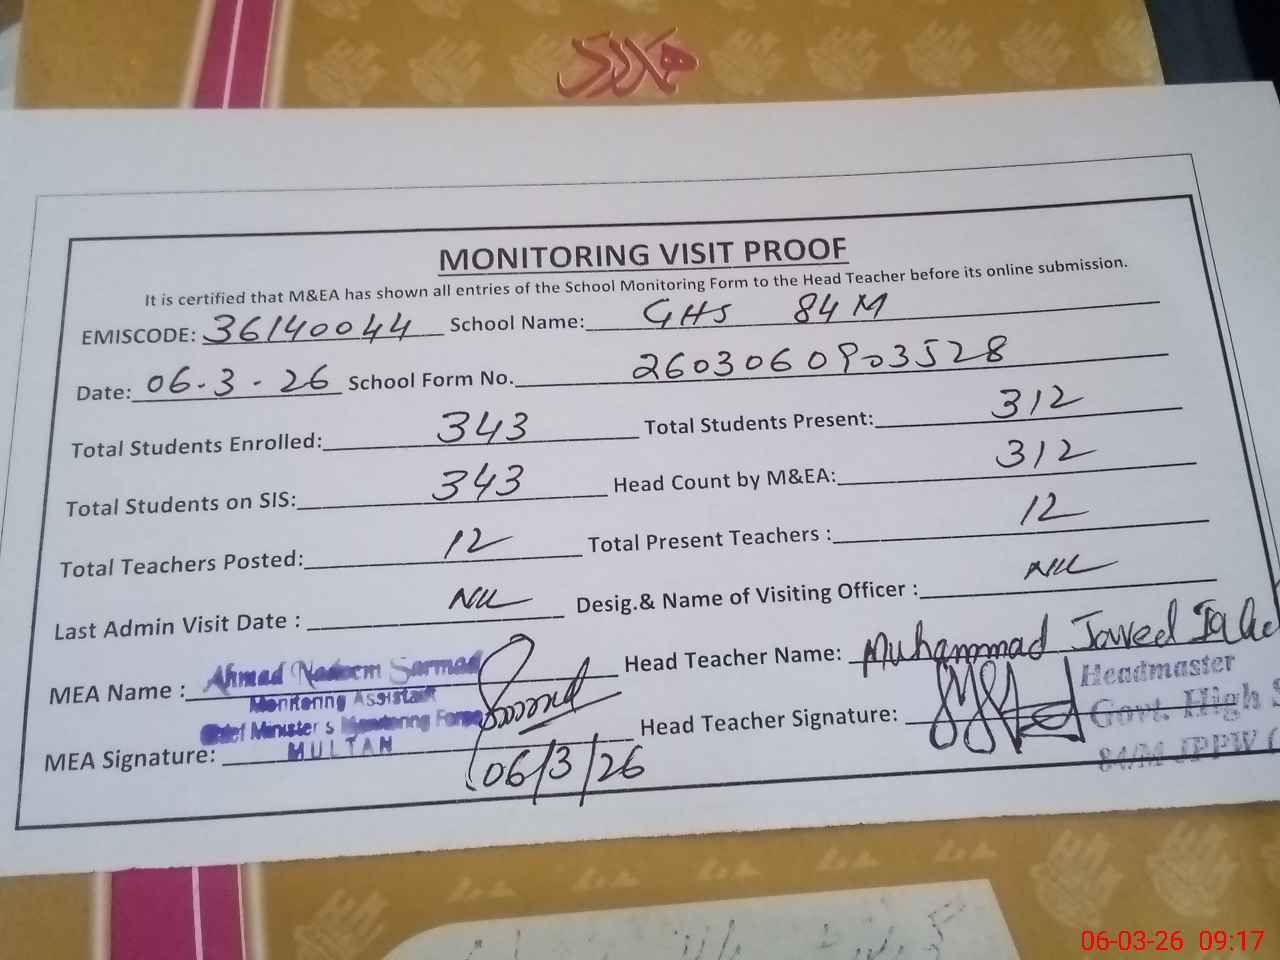 ہمدرد
MONITORING VISIT PROOF
It is certified that M&EA has shown all entries of the School Monitoring Form to the Head Teacher before its online submission.
EMISCODE: 36140044 School Name: GHS 84 M
Date: 06.3.26 School Form No. 2603060903528
Total Students Enrolled: 343 Total Students Present: 312
Total Students on SIS: 343 Head Count by M&EA: 312
Total Teachers Posted: 12 Total Present Teachers : 12
Last Admin Visit Date : Nil Desig.& Name of Visiting Officer : Nil
MEA Name : Ahmad Nadeem Sarmad Head Teacher Name: Muhammad Javeed
Monitoring Assistant
Chief Minister's Monitoring Force
MULTAN
MEA Signature: 06/3/26 Head Teacher Signature:
Headmaster
Govt. High
84/M JPPW
06-03-26 09:17